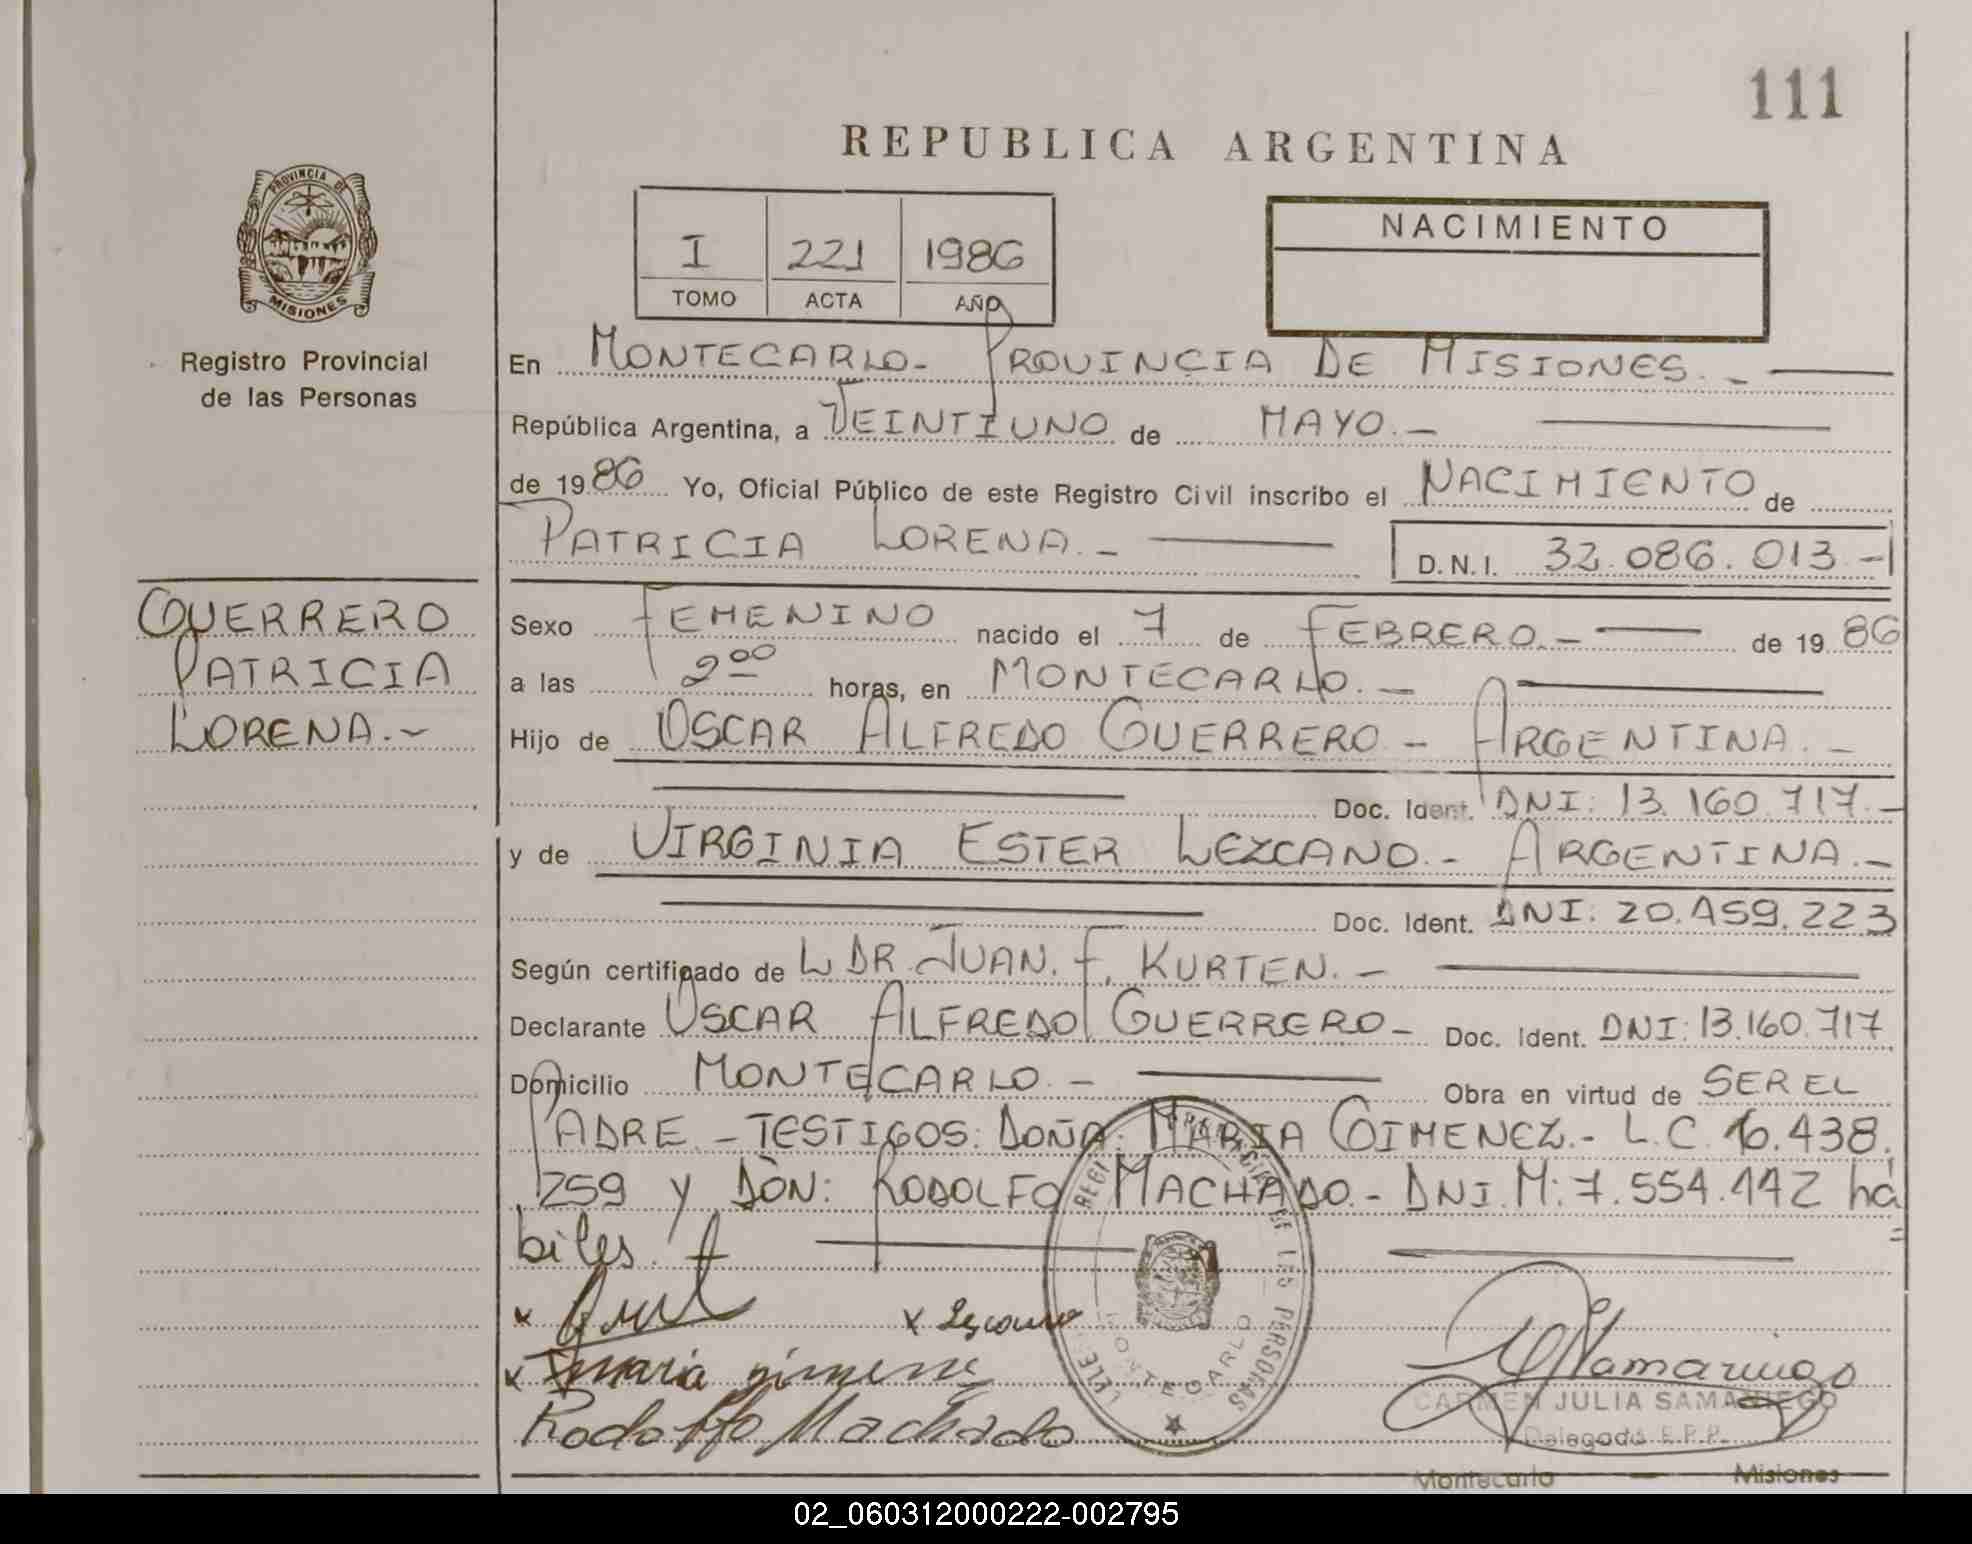 111
REPUBLICA ARGENTINA
PROVINCIA DE
MISIONES
Registro Provincial
de las Personas
I 221 1986
TOMO ACTA AÑO
NACIMIENTO
En MONTECARLO- PROVINCIA DE MISIONES.-
República Argentina, a VEINTIUNO de MAYO.-
de 1986 Yo, Oficial Público de este Registro Civil inscribo el NACIMIENTO de
PATRICIA LORENA.- D.N.I. 32.086.013-
GUERRERO
PATRICIA
LORENA.-
Sexo FEMENINO nacido el 7 de FEBRERO.- de 1986
a las 2 00 horas, en MONTECARLO.-
Hijo de OSCAR ALFREDO GUERRERO - ARGENTINA.-
Doc. Ident. DNI: 13.160.717.-
y de VIRGINIA ESTER LEZCANO.- ARGENTINA.-
Doc. Ident. DNI: 20.459.223
Según certificado de L DR. JUAN. F. KURTEN.-
Declarante OSCAR ALFREDO GUERRERO- Doc. Ident. DNI: 13.160.717
Domicilio MONTECARLO.- Obra en virtud de SER EL
PADRE.- TESTIGOS: DOÑA: MARIA GIMENEZ.- L.C. 10.438.
259 Y DON: RODOLFO MACHADO.- DNI.M: 7.554.442 há
biles.
x x Lescano
x maria gimenes
Rodolfo Machado
MONTECARLO
CARMEN JULIA SAMANIEGO
Delegada R.P.P.
Montecarlo - Misiones
02_060312000222-002795